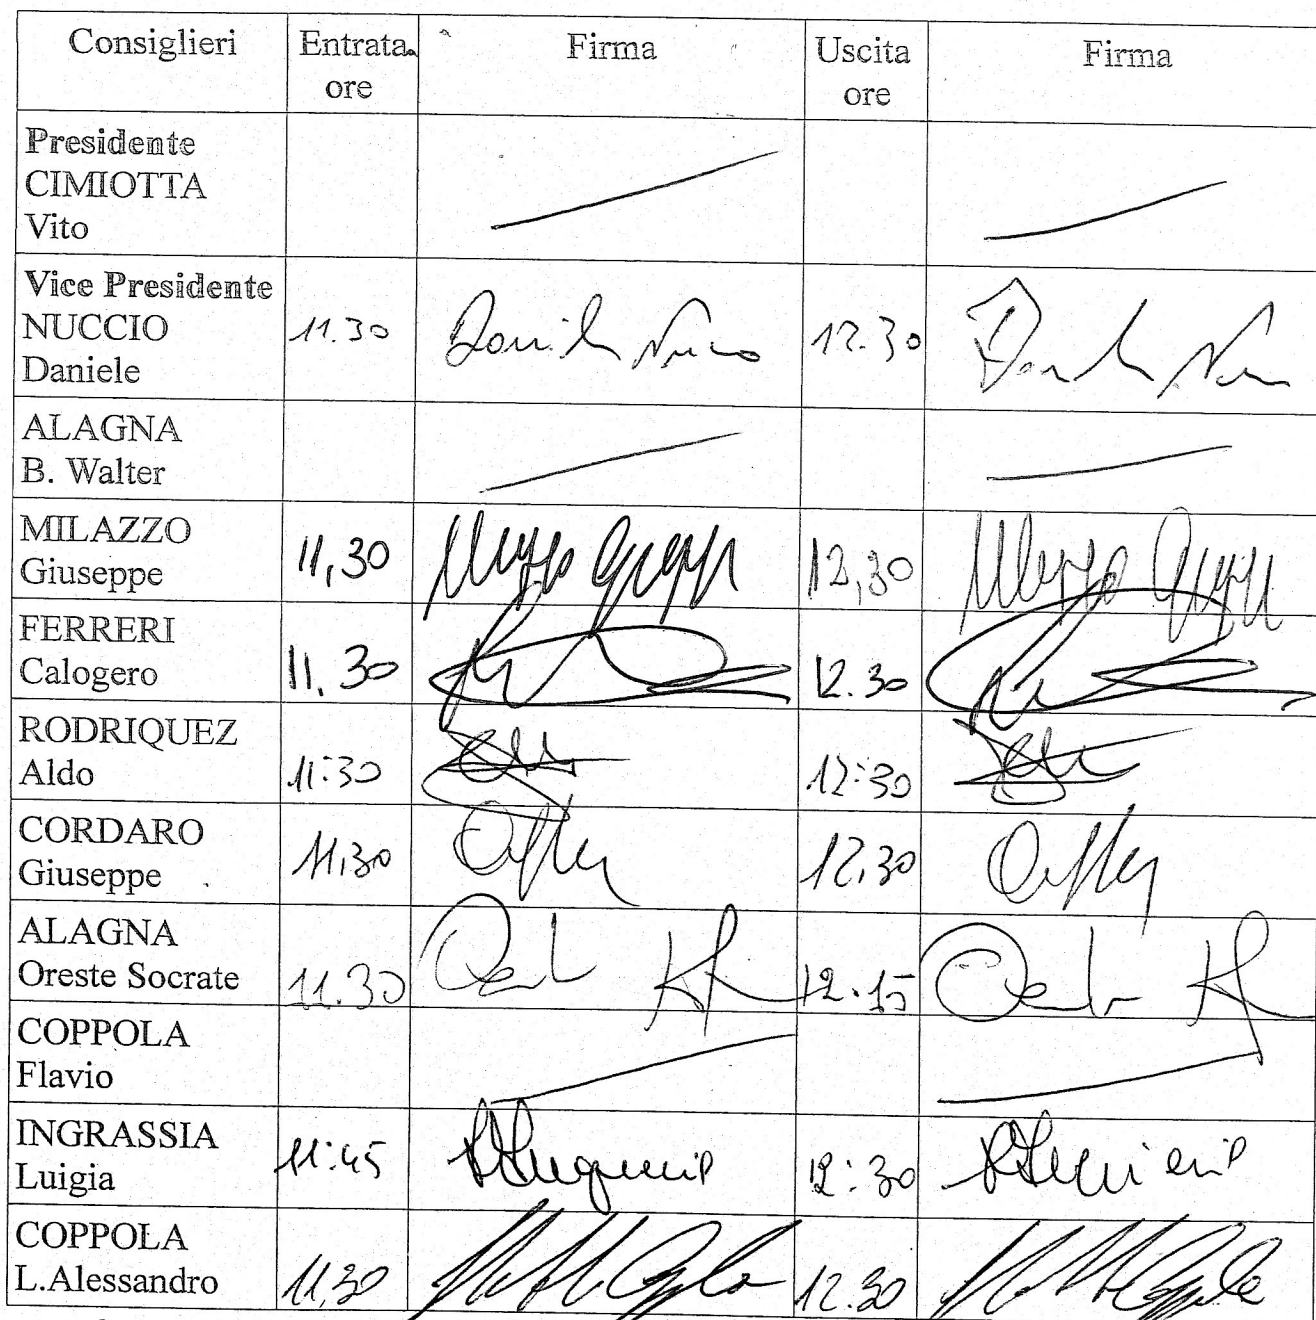 Consiglieri Entrata ore Firma Uscita ore Firma
Presidente
CIMIOTTA
Vito
Vice Presidente
NUCCIO 11.30 12.30
Daniele
ALAGNA
B. Walter
MILAZZO
Giuseppe 11,30 12,30
FERRERI
Calogero 11.30 12.30
RODRIQUEZ
Aldo 11:30 12:30
CORDARO
Giuseppe 11,30 12,30
ALAGNA
Oreste Socrate 11.30 12.15
COPPOLA
Flavio
INGRASSIA
Luigia 11:45 12:30
COPPOLA
L.Alessandro 11,30 12.30